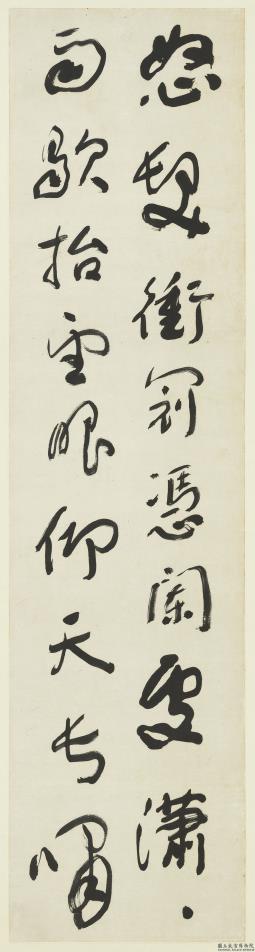 怒髮衝冠憑闌處瀟〻
雨歇抬望眼仰天長嘯
國立故宮博物院
NATIONAL PALACE MUSEUM